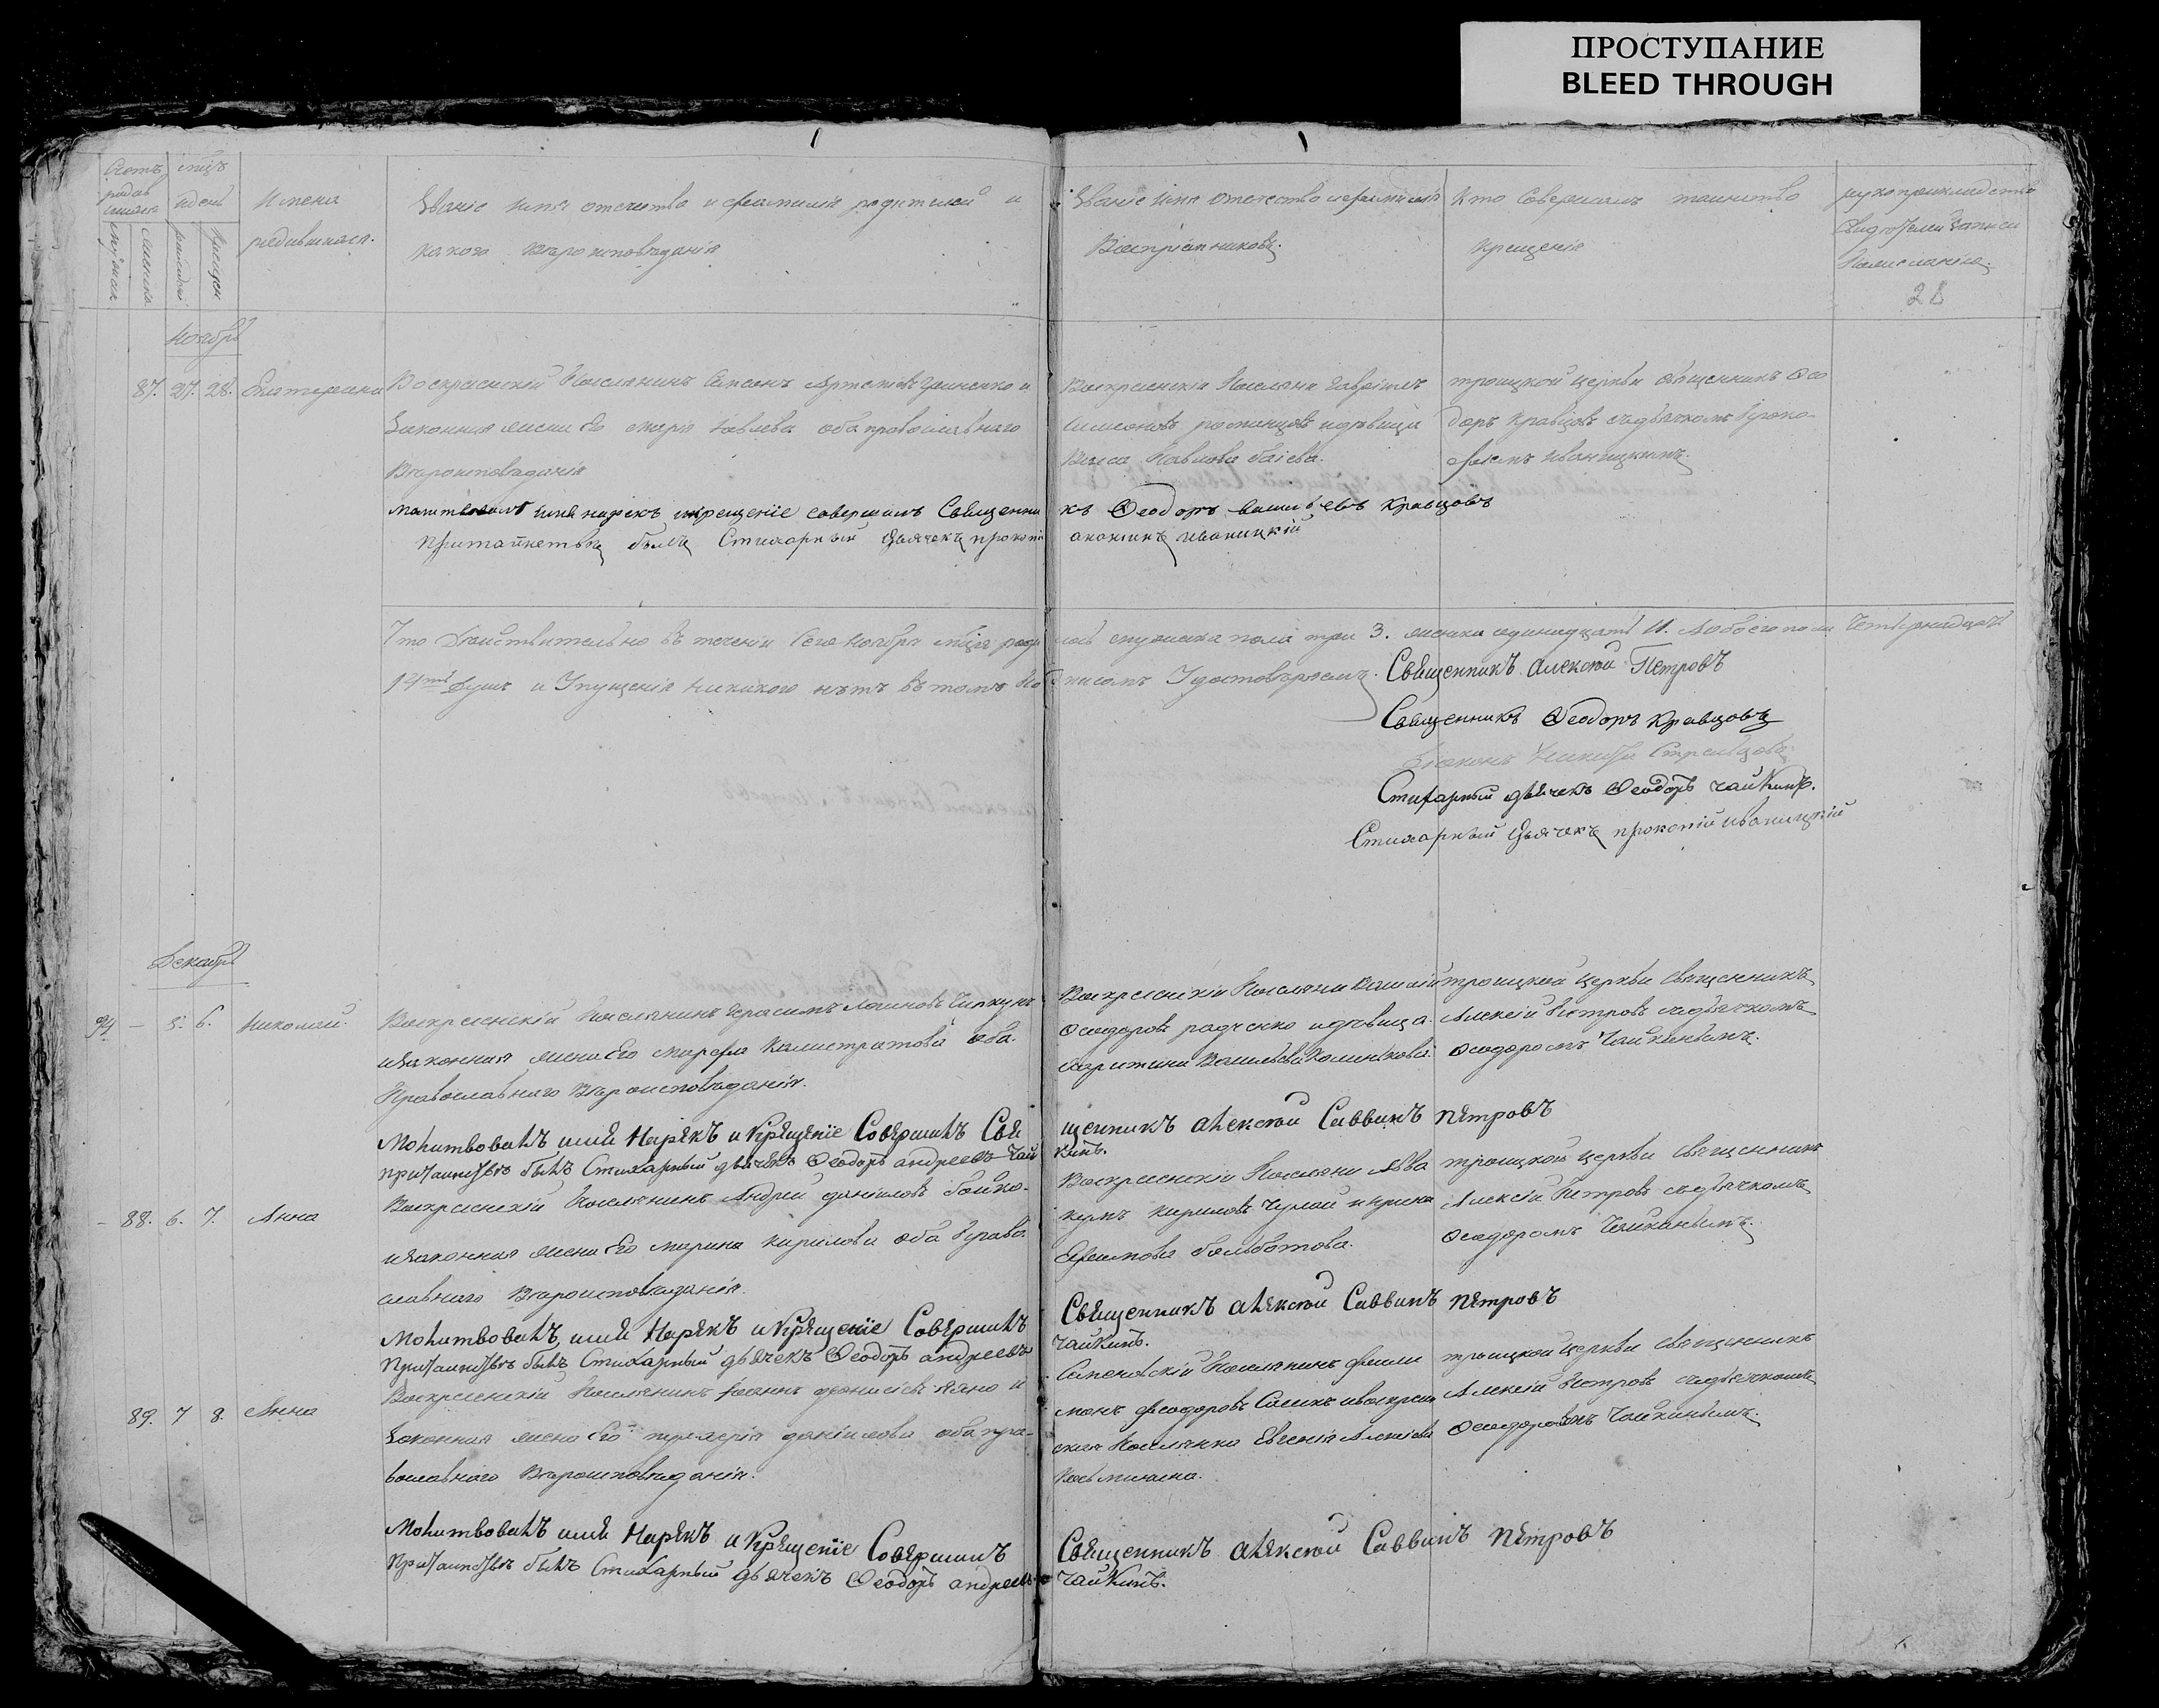 ПРОСТУПАНИЕ
BLEED THROUGH
Счетъ мцъ
и день
Имена
родившихся.
Званіе имя отечество и фамилія родителей и
какого Вѣроисповѣданія
Званіе имя отечество и фамилія
Воспріемниковъ.
Кто Совершалъ таинство
крещенія
рукоприкладство
Свидѣтелей записи
по желанію.
28
Ноябрь
87. 27. 28. Екатерина
Воскресенскій Поселянинъ Артемовъ и
Законная жена Его Марія оба православнаго
Вѣроисповѣданія
Воскресенскій Поселянинъ Гавріилъ
Симеоновъ и дѣвица
Павлова
троицкой церкви Священникъ Ѳео
доръ Кравцовъ съ дьячкомъ Проко
фіемъ Иваницкимъ.
Молитвовалъ имя нарекъ и крещеніе совершалъ Священни
къ Ѳеодоръ Кравцовъ
При таинствѣ былъ Стихарный Дьячекъ прокопій
иваницкій
Что Дѣйствительно въ теченіи Сего Ноября мѣсяца роди
лось мужеска пола три 3. женска одинадцать 11. А обоего пола Четырнадцать
14ть Душъ и Упущенія никакого нѣтъ въ томъ по
дписомъ Удостовѣряемъ.
Священникъ Алексѣй Петровъ
Священникъ Ѳеодоръ Кравцовъ
Стихарный дьячекъ Ѳеодоръ Чайкинъ.
Стихарный Дьячекъ прокопій иваницкій
Декабрь
94 – 5. 6. Николай.
Воскресенскій Поселянинъ Герасимъ
и законная жена Его Марфа Калистратова оба
Православнаго Вѣроисповѣданія.
Воскресенскій Поселянинъ
Ѳеодоровъ радченко и дѣвица
троицкой церкви Священникъ
Алексій Петровъ съ дьячкомъ
Ѳеодоромъ Чайкинымъ.
Молитвовалъ имя Нарекъ и Крещеніе Совершилъ Свя
щенникъ Алексѣй Саввинъ Петровъ
При таинствѣ былъ Стихарный дьячекъ Ѳеодоръ андреевъ Чай
кинъ.
– 88. 6. 7. Анна
Воскресенскій Поселянинъ Андрей даніиловъ бойко
и законная жена Его Марина Кирилова оба Право
славнаго Вѣроисповѣданія.
Воскресенскій Поселянинъ
Кириловъ
Ефимова
троицкой церкви Священникъ
Алексій Петровъ съ дьячкомъ
Ѳеодоромъ Чайкинымъ.
Молитвовалъ имя Нарекъ и Крещеніе Совершилъ
Священникъ Алексѣй Саввинъ Петровъ
При таинствѣ былъ Стихарный дьячекъ Ѳеодоръ андреевъ
Чайкинъ.
89. 7 8. Анна
Воскресенскій Поселянинъ Іоаннъ и
Законная жена Его даніилова оба пра
вославнаго Вѣроисповѣданія.
Поселянинъ Фили
монъ Ѳеодоровъ и воскресен
ская Поселянка Евгенія Алексіева
троицкой церкви Священникъ
Алексій Петровъ съ дьячкомъ
Ѳеодоромъ Чайкинымъ.
Молитвовалъ имя Нарекъ и Крещеніе Совершилъ
Священникъ Алексѣй Саввинъ Петровъ
При таинствѣ былъ Стихарный дьячекъ Ѳеодоръ андреевъ
Чайкинъ.